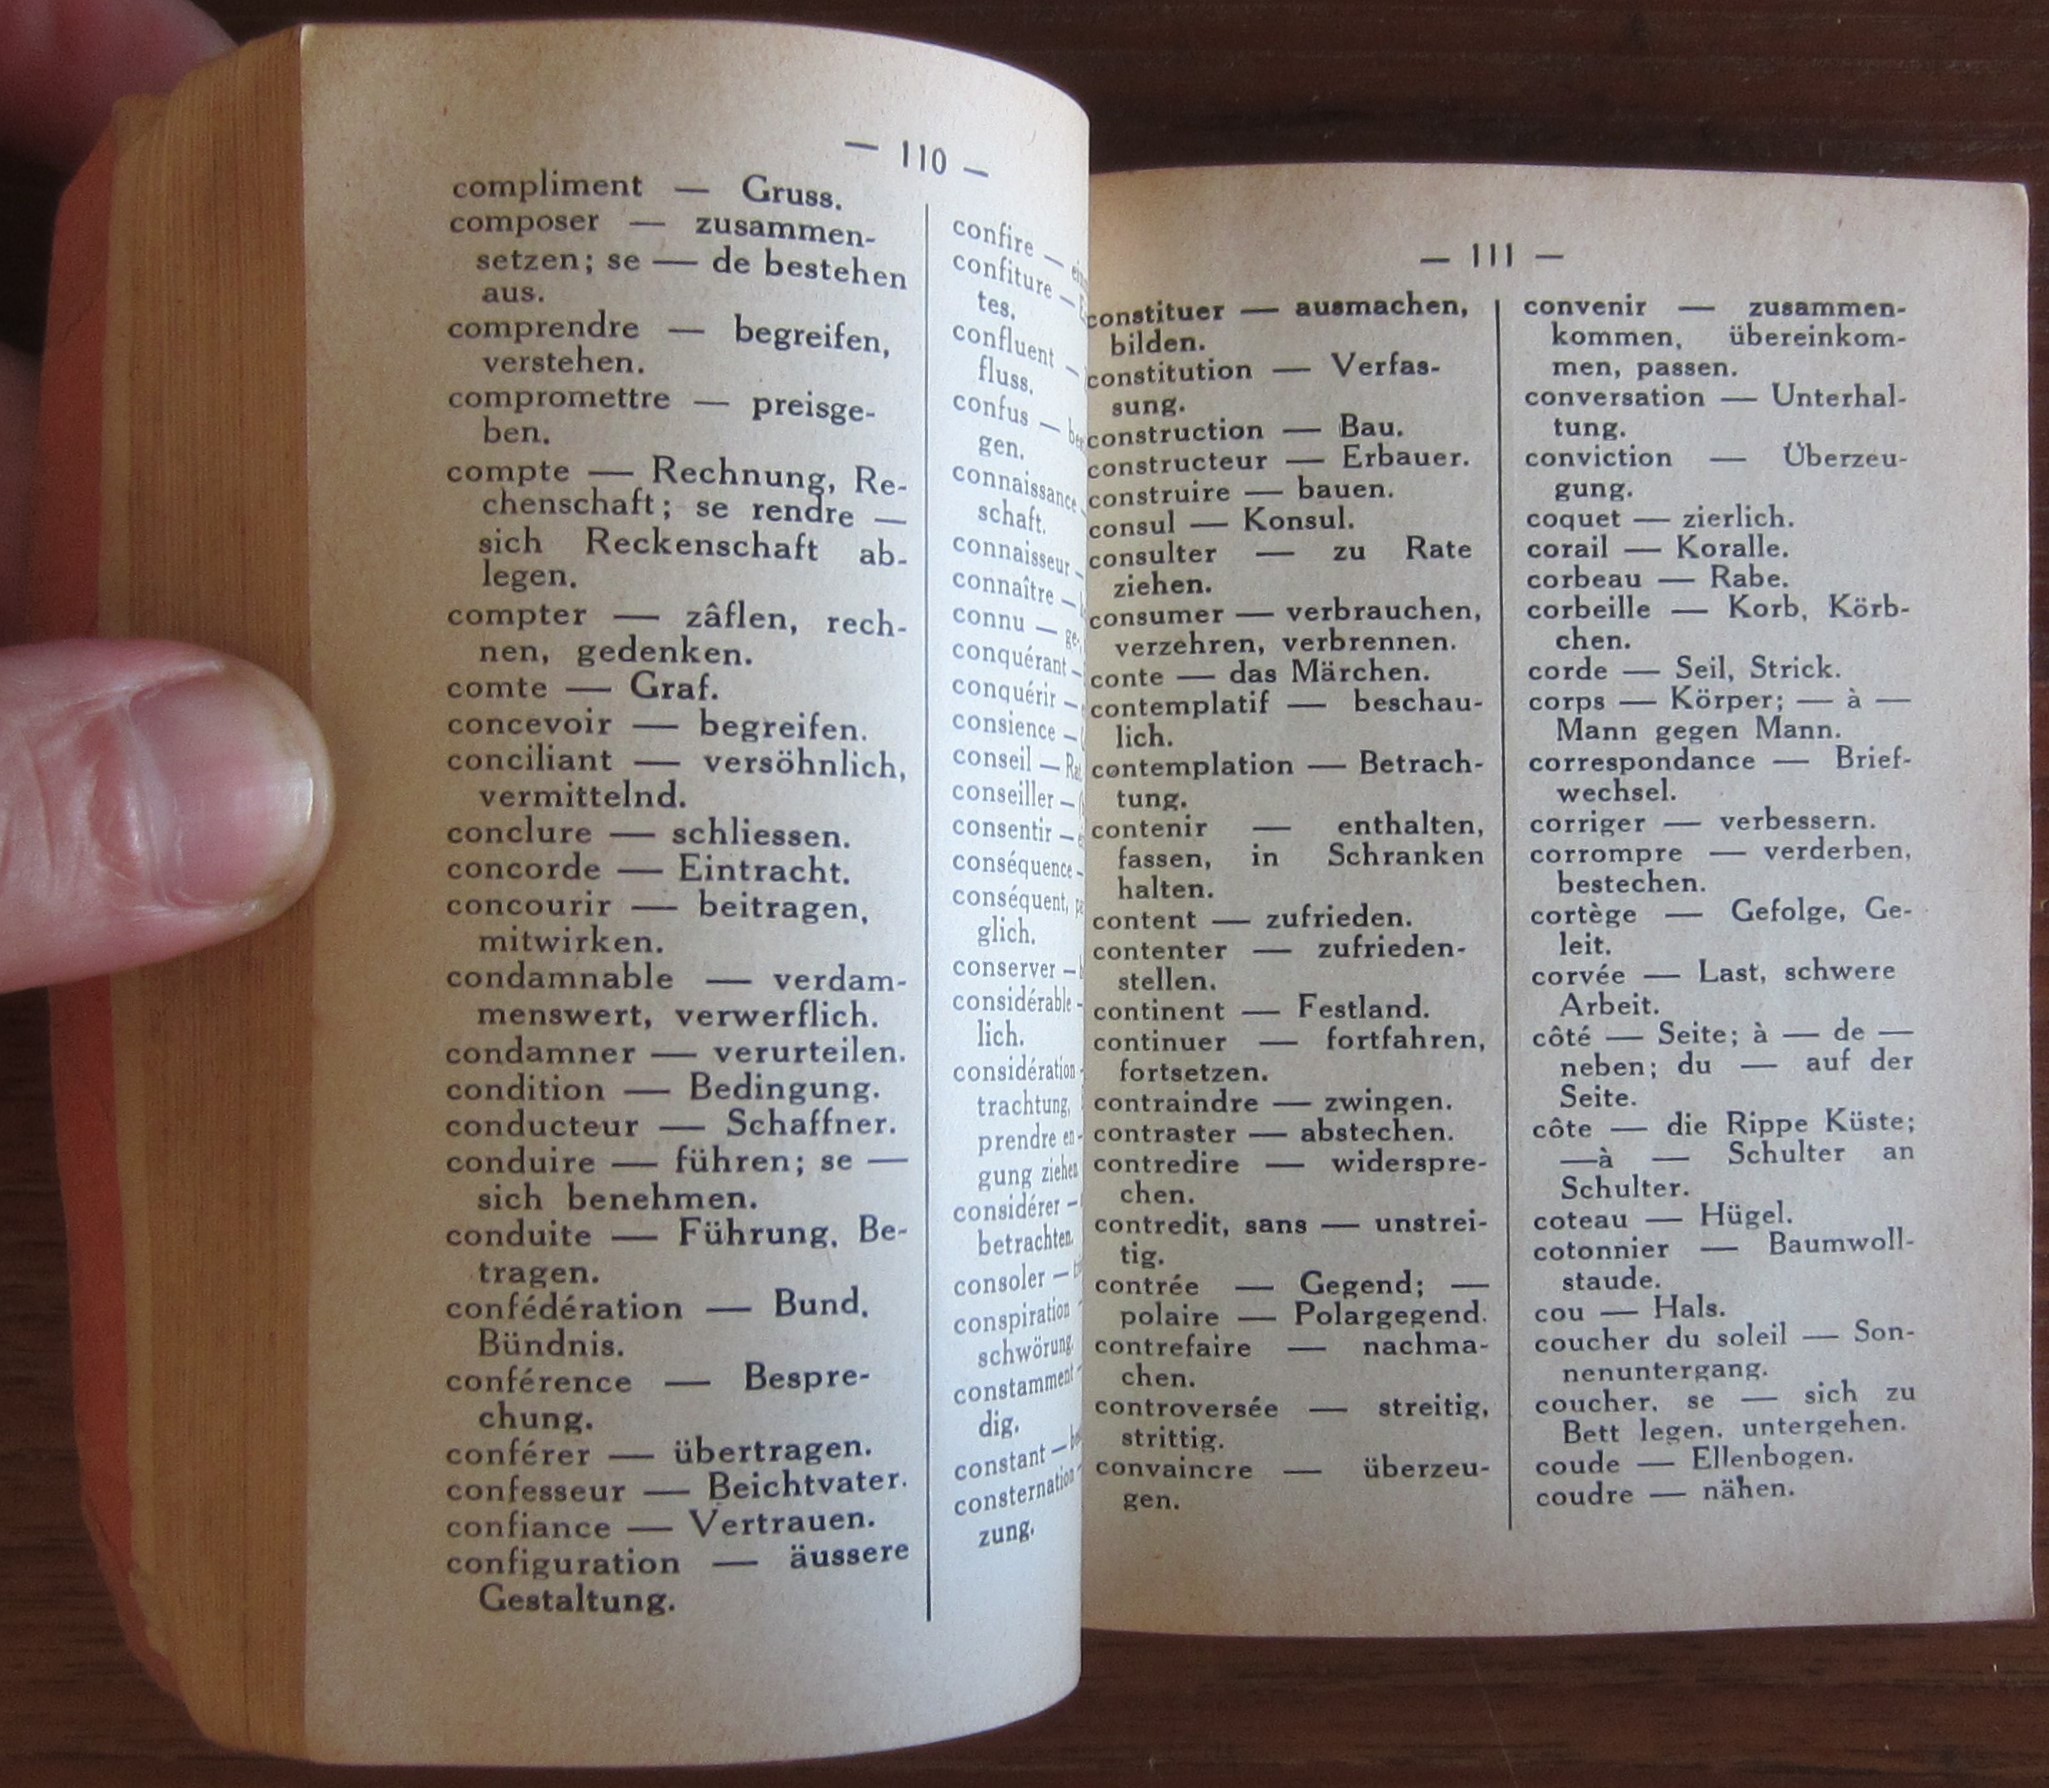 — 110 —
compliment — Gruss.
composer — zusammen-
setzen; se — de bestehen
aus.
comprendre — begreifen,
verstehen.
compromettre — preisge-
ben.
compte — Rechnung, Re-
chenschaft; se rendre —
sich Reckenschaft ab-
legen.
compter — zâflen, rech-
nen, gedenken.
comte — Graf.
concevoir — begreifen.
conciliant — versöhnlich,
vermittelnd.
conclure — schliessen.
concorde — Eintracht.
concourir — beitragen,
mitwirken.
condamnable — verdam-
menswert, verwerflich.
condamner — verurteilen.
condition — Bedingung.
conducteur — Schaffner.
conduire — führen; se —
sich benehmen.
conduite — Führung, Be-
tragen.
confédération — Bund,
Bündnis.
conférence — Bespre-
chung.
conférer — übertragen.
confesseur — Beichtvater.
confiance — Vertrauen.
configuration — äussere
Gestaltung.
confire —
confiture —
tes.
confluent —
fluss.
confus —
gen.
connaissance -
schaft.
connaisseur —
connaître —
connu — ge-
conquérant -
conquérir —
consience —
conseil —
conseiller —
consentir —
conséquence -
conséquent,
glich.
conserver —
considérable -
lich.
considération -
trachtung,
prendre en-
gung ziehen
considérer —
betrachten.
consoler —
conspiration -
schwörung.
constamment -
dig.
constant —
consternation -
zung.
— 111 —
constituer — ausmachen,
bilden.
constitution — Verfas-
sung.
construction — Bau.
constructeur — Erbauer.
construire — bauen.
consul — Konsul.
consulter — zu Rate
ziehen.
consumer — verbrauchen,
verzehren, verbrennen.
conte — das Märchen.
contemplatif — beschau-
lich.
contemplation — Betrach-
tung.
contenir — enthalten,
fassen, in Schranken
halten.
content — zufrieden.
contenter — zufrieden-
stellen.
continent — Festland.
continuer — fortfahren,
fortsetzen.
contraindre — zwingen.
contraster — abstechen.
contredire — widerspre-
chen.
contredit, sans — unstrei-
tig.
contrée — Gegend; —
polaire — Polargegend.
contrefaire — nachma-
chen.
controversée — streitig,
strittig.
convaincre — überzeu-
gen.
convenir — zusammen-
kommen, übereinkom-
men, passen.
conversation — Unterhal-
tung.
conviction — Überzeu-
gung.
coquet — zierlich.
corail — Koralle.
corbeau — Rabe.
corbeille — Korb, Körb-
chen.
corde — Seil, Strick.
corps — Körper; — à —
Mann gegen Mann.
correspondance — Brief-
wechsel.
corriger — verbessern.
corrompre — verderben,
bestechen.
cortège — Gefolge, Ge-
leit.
corvée — Last, schwere
Arbeit.
côté — Seite; à — de —
neben; du — auf der
Seite.
côte — die Rippe Küste;
—à — Schulter an
Schulter.
coteau — Hügel.
cotonnier — Baumwoll-
staude.
cou — Hals.
coucher du soleil — Son-
nenuntergang.
coucher, se — sich zu
Bett legen, untergehen.
coude — Ellenbogen.
coudre — nähen.